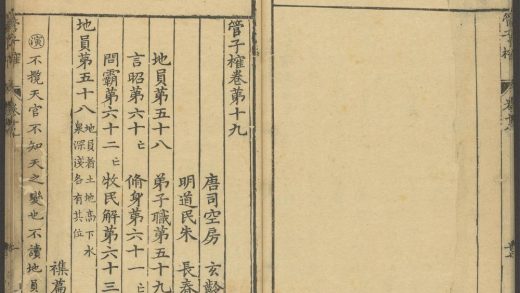 管子榷 卷十九
管子榷卷第十九
唐司空房 玄齡
明道民朱 長春
地員第五十八 弟子職第五十九
言昭第六十亡 脩身第六十一亡
問霸第六十二亡 牧民解第六十三
地員第五十八 地員者土地高下水
泉深淺各有其位
襍篇
演 不攬天官不知天之變也不讀地員
管子榷 卷十九